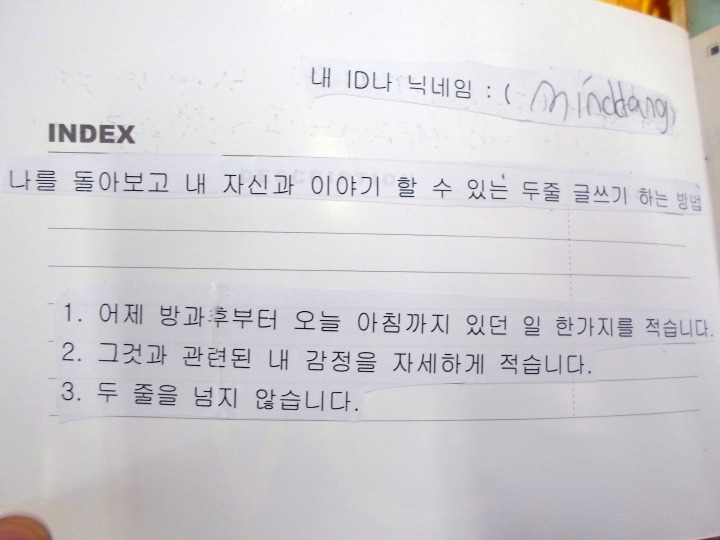 내 ID나 닉네임 : ( minddang)
INDEX
나를 돌아보고 내 자신과 이야기 할 수 있는 두줄 글쓰기 하는 방법
1. 어제 방과후부터 오늘 아침까지 있던 일 한가지를 적습니다.
2. 그것과 관련된 내 감정을 자세하게 적습니다.
3. 두 줄을 넘지 않습니다.